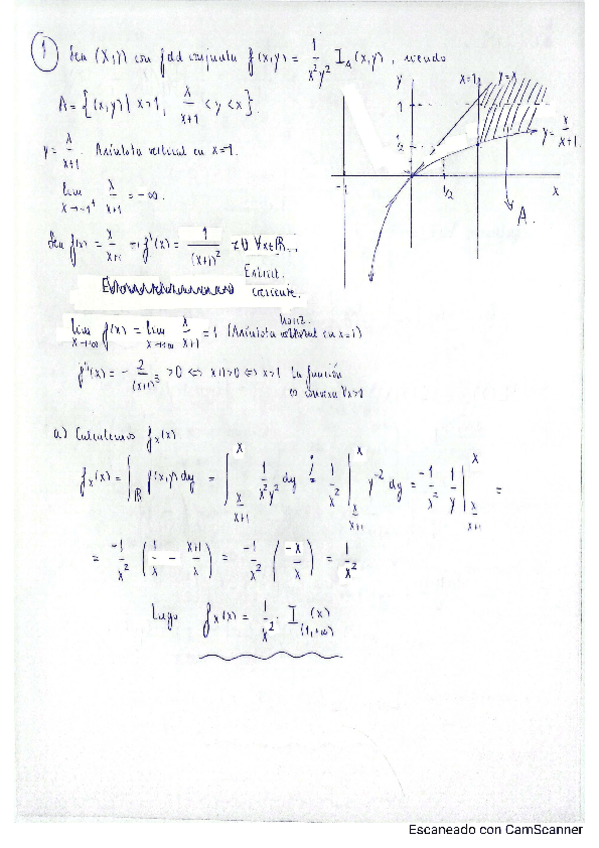 1 Sea (X,Y) con fdd conjunta f(x,y) = 1/x²y² I_A(x,y), siendo
A = {(x,y) | x>1, x/x+1 < y < x}.
y = x/x+1. Asíntota vertical en x=-1.
lim x→-1⁺ x/x+1 = -∞.
Sea f(x) = x/x+1 ⇒ f'(x) = 1/(x+1)² >0 ∀x∈ℝ.
Estrict. creciente.
lim x→+∞ f(x) = lim x→+∞ x/x+1 = 1 (Asíntota horiz.
f''(x) = - 2/(x+1)³ >0 ⇔ x+1>0 ⇔ x>1 La función
es convexa ∀x>0
a) Calculemos f_X(x)
f_X(x) = ∫_ℝ f(x,y) dy = ∫_{x/x+1}^{x} 1/x²y² dy = 1/x² ∫_{x/x+1}^{x} y⁻² dy = -1/x² 1/y |_{x/x+1}^{x} =
= -1/x² (1/x - x+1/x) = -1/x² (-x/x) = 1/x²
Luego f_X(x) = 1/x² · I_(1,+∞)(x)
y
x=1
y=x
1
1/2
y = x/x+1
-1
1/2
x
A.
Escaneado con CamScanner